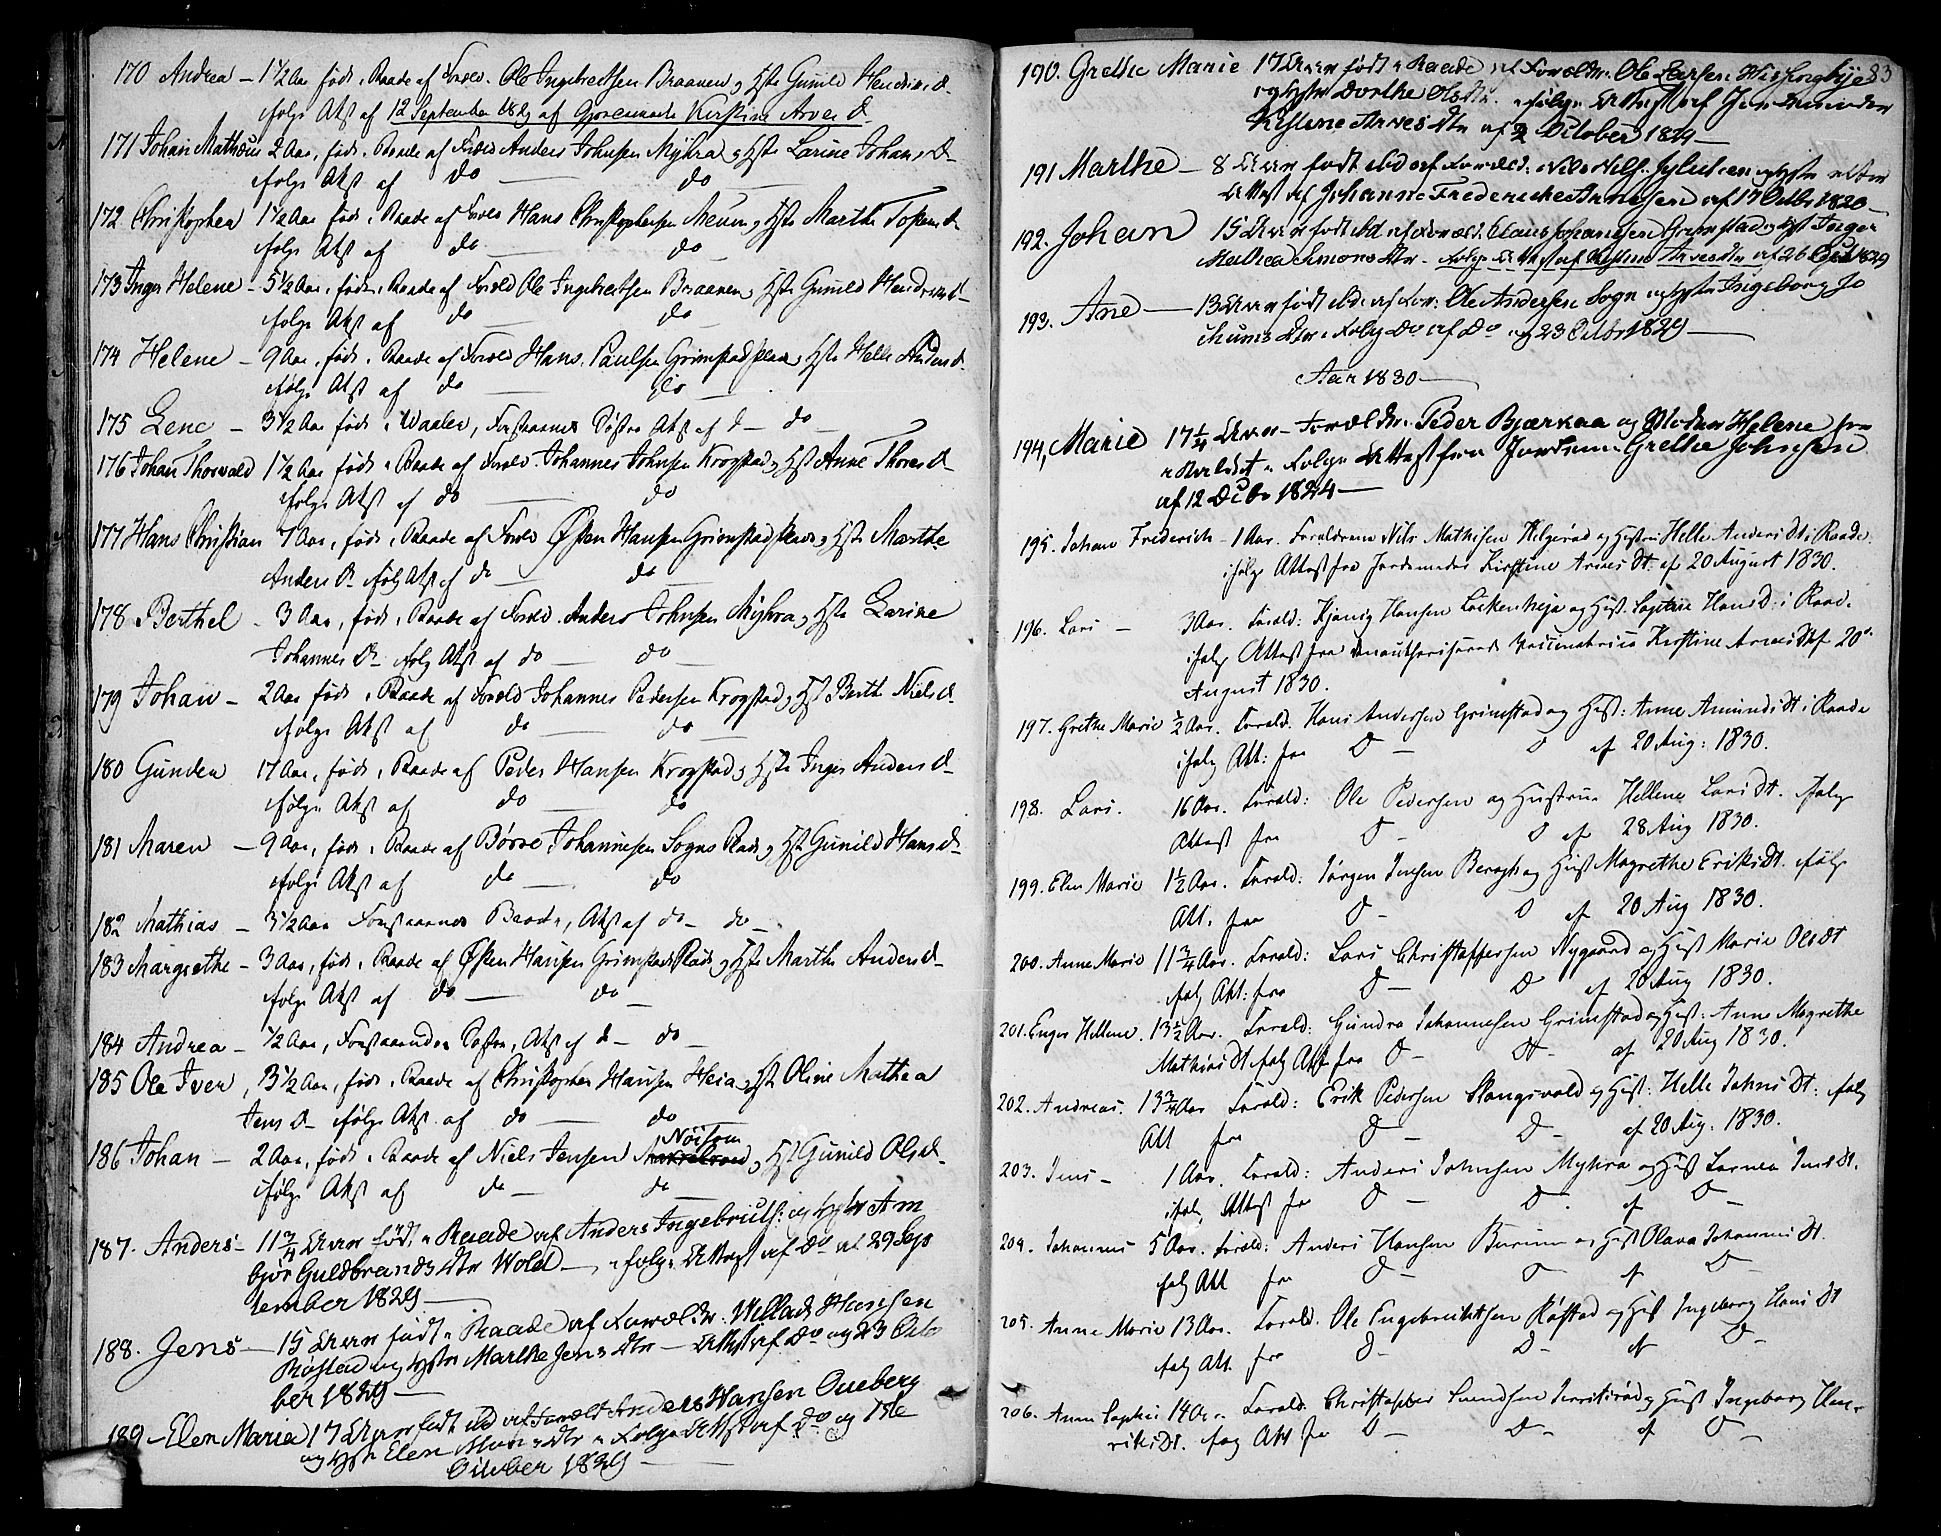 170 Andrea – 1½ Aar, født i Raade af Foræld. Ole Ingebretsen Braanen og Hst Gunild Hendrics d.
ifølge Atst af 12 September 1829 af Gjoremoder Kirstine Arves d.
171 Johan Mathæus 2 Aar, født i Raade af Foræld Anders Johnsen Myhra og Hst Larine Johans D
ifølge Atst af do — do —
172 Christopher 1½ Aar født i Raade af Foræld Hans Christophersen og Hst Marthe D
ifølge Atst af do — do —
173 Inger Helene – 5½ Aar, født i Raade af Foræld Ole Ingebretsen Braanen og Hst Gunild Hendrics d
ifølge Atst af do — do —
174 Helene – 9 Aar, født i Raade af Foræld Hans Paulsen Grimstadplads og Hst Helle Anders d.
ifølge Atst af do — do —
175 Lene – 3½ Aar født i Waaler, Forstaaendes Søster Atst af do – do –
176 Johan Thorvald 1½ Aar født i Raade af Foræld. Johannes Johnsen Krogstad og Hst Anne Thores D
ifølge Atst af do — do
177 Hans Christian 7 Aar, født i Raade af Foræld Østen Hansen Grimstadplads og Hst Marthe
Anders D ifølg Atst af do — do —
178 Berthel – 3 Aar, født i Raade af Foræld. Anders Johnsen Myhra og Hst Larine
Johannes D ifølg Atst af do — do —
179 Johan – 2 Aar født i Raade af Foræld Johannes Pedersen Krogstad og Hst Berthe Niels d.
ifølge Atst af do — do —
180 Gunder 17 Aar, født i Raade af Peder Hansen Krogstad og Hst Inger Anders d
ifølge Atst af do — do
181 Maren – 9 Aar, født i Raade af Børre Johannesen Sogns Plads og Hst Gunild Hans d
ifølge Atst af do — do
182 Mathias – 3½ Aar Forstaaendes Broder, Atst af do – do –
183 Margrethe – 3 Aar, født i Raade af Østen Hansen Grimstads Plads og Hst Marthe Anders d
ifølge Atst af do — do —
184 Andrea – ½ Aar, Forstaaendes Søster, Atst af do – do –
185 Ole Iver, 13½ Aar, født i Raade af Christopher Hansen Heia og Hst Oline Mathea
Jens D ifølge Atst af do — do
186 Johan – 2 Aar, født i Raade af Niels Jensen Nöisom og Hst Gunild Ols d.
ifølge Atst af do — do —
187. Anders – 11¾ Aar født i Raade af Anders Ingebrits: og Hstr Am
bjør Guldbrands Dtr Wold – ifølge Attest af Do af 29 Sep
tember 1829
188. Jens – 15 Aar født i Raade af Forældr. Willads Hansen
Röstad og Hstr Marthe Jens Dtr – Attest af Do og 23 Octo
ber 1829 –
189 – Elen Maria 17 Aar født ibd af Foræld Anders Hansen Oueberg
og Hstr Elen Dtr ifølge Attest af Do og 1ste
October 1829 –
83
190. Grethe Marie 17 Aar født i Raade af Forældr. Ole Larsen
og Hstr Dorthe Ols Dtr. ifølge Attest af Jordemoder
Kistene Arves Dtr af 2 October 1829 –
191 Marthe – 8 Aar født ibd af Foræld: Nils Nils.
Attest af Johanne Frederickea af 17 Octbr 1820 –
192. Johan 15 Aar født ibd af Foræld. Claus Johannesen Grimstad og Hst Inger
Mathea Simons Dtr – ifølge Attest af Kistine Arves Dtr af 26 Oct 1829
193. Ane – 13 Aar født ibd. af For: Ole Andersen Sogn og Hstr Ingeborg Jo
hans Dtr ifølg Do af Do og 23 Octbr 1829 –
Aar 1830 –
194, Marie 17¼ Aar – Forældr. Peder Bjærkaa og Moder Helene
ifølge Attest fra Jordem: Grethe Johnsen
af 12 Dcbr 1824 –
195. Johan Friderich – 1 Aar. Forældrene Nils Mathisen Helgerød og Hustru Helle Anders Dt. i Raade.
ifølge Attest fra Jordemoder Kirstine Arves Dt. af 20 August 1830.
196. Lars – 3 Aar. Foræld: Hansen og Hust. Sophie Hans D: i Raad.
ifølg Attest fra Kirstine Arves Dt af 20de
August 1830.
197. Grethe Marie ½ Aar. Foræld. Hans Andersen Grimstad og Hust: Anne Amunds Dt i Raade
ifølg Att: fra D – D af 20 Aug: 1830.
198. Lars. 16 Aar. Foræld: Ole Pedersen og Hustrue Hellene Lars Dt. ifølg
Attest fra D – D af 28 Aug 1830.
199. Elen Marie 1½ Aar. Foræld: Jørgen Jensen Bergh og Hust Magrethe Eriks Dt. ifølg
Att. fra D – D af 20 Aug 1830.
200. Anne Marie 11¾ Aar. Foræld: Lars Christophersen Nygaard og Hust Marie Ols Dt
ifølg Att: fra D – D af 20 Aug 1830.
201. Enger Hellene. 13½ Aar. Foræld: Gundro Johannesen Grimstad og Hust: Anne Magrethe
Mathias Dt ifølg Att fra D – D – af 20 Aug 1830.
202. Andreas. 13¾ Aar Foræld: Erik Pedersen Slangsvold og Hust: Helle Johns Dt: ifølg
Att fra D – D – af 20 Aug. 1830.
203. Jens – 1 Aar. Foræld: Anders Johnsen Myhra og Hust Larnea Jens Dt.
ifølg Attest fra D – D – af D –
204. Johannes 5 Aar. Foræld: Anders Hansen og Hust Olava Johannes Dt.
ifølg Att fra D – D – af D –
205. Anne Marie 13 Aar. Foræld. Ole Engebrethtsen Røstad og Hust Ingeborg Hans Dt
ifølg Att. fra D – D – af D –
206. Anne Sophie 14 Aar. Foræld. Christopher Svendsen og Hust Ingeborg Hen-
riks Dt. ifølg Att fra D – D – af D –